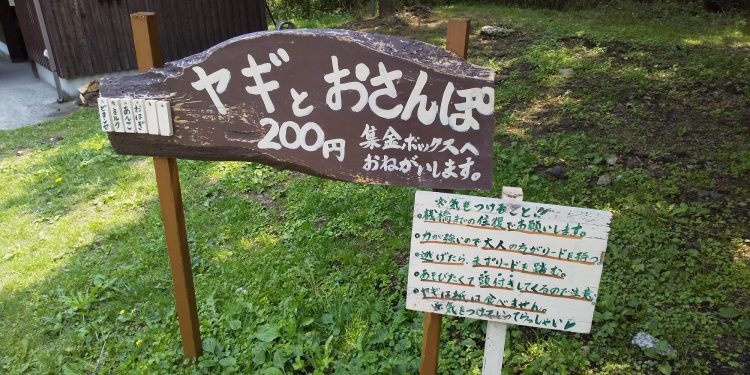 ヤギとおさんぽ
200円 集金ボックスへ
おねがいします。
おはぎ
あんこ
ミルク
※気をつけること!!
桟橋までの往復でお願いします。
力が強いので大人の方がリードを持つ
逃げたら、まずリードを踏む。
あそびたくて頭付きしてくるので注意
ヤギは紙は食べません。
※気をつけていってらっしゃい